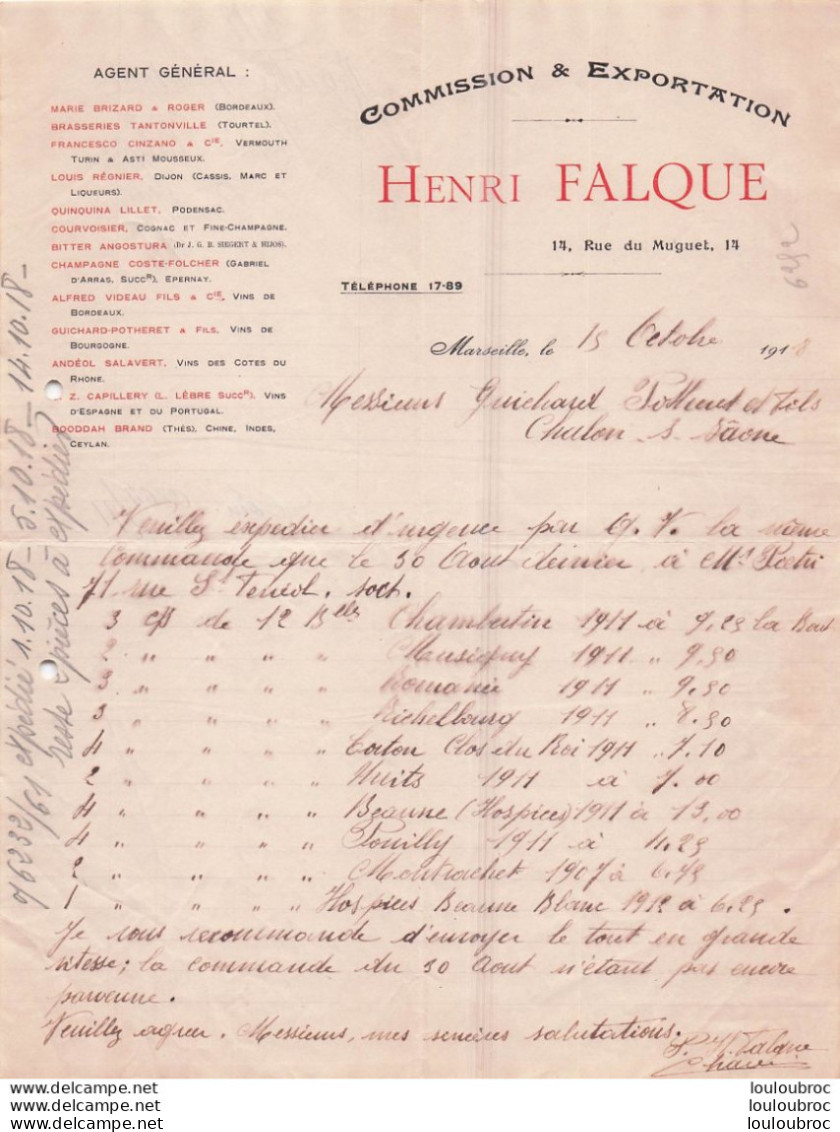 AGENT GÉNÉRAL :
MARIE BRIZARD & ROGER (BORDEAUX).
BRASSERIES TANTONVILLE (TOURTEL).
FRANCESCO CINZANO & CIE, VERMOUTH
TURIN & ASTI MOUSSEUX.
LOUIS RÉGNIER, DIJON (CASSIS, MARC ET
LIQUEURS).
QUINQUINA LILLET, PODENSAC.
COURVOISIER, COGNAC ET FINE-CHAMPAGNE.
BITTER ANGOSTURA (Dr J. G. B. SIEGERT & HIJOS).
CHAMPAGNE COSTE-FOLCHER (GABRIEL
D'ARRAS, SUCCR), EPERNAY.
ALFRED VIDEAU FILS & CIE, VINS DE
BORDEAUX.
GUICHARD-POTHERET & FILS, VINS DE
BOURGOGNE.
ANDÉOL SALAVERT, VINS DES COTES DU
RHONE.
Z. CAPILLERY (L. LÈBRE SUCCR), VINS
D'ESPAGNE ET DU PORTUGAL.
BOODDAH BRAND (THÉS), CHINE, INDES,
CEYLAN.
COMMISSION & EXPORTATION
HENRI FALQUE
14, Rue du Muguet, 14
TÉLÉPHONE 17-89
Marseille, le 15 Octobre 1918
Messieurs Guichard Potheret et fils
Chalon s. Sâone
Veuillez expedier d'urgence par G. V. la même
commande que le 30 Aout dernier à
71 rue St
3 c/s de 12 Blles Chambertin 1911 à 9.25 la Bout
2 " " " " Musigny 1911 " 9.50
3 " " " " Romanée 1911 " 9.50
3 " " " " Richebourg 1911 " 8.50
4 " " " " Corton Clos du Roi 1911 " 7.10
2 " " " " Nuits 1911 à 7.00
4 " " " " Beaune (Hospices) 1911 à 13.00
4 " " " " Pouilly 1911 à 4.25
2 " " " " Montrachet 1907 à 6.75
1 " " " " Hospices Beaune Blanc 1912 à 6.25.
Je vous recommande d'envoyer le tout en grande
vitesse; la commande du 30 Aout n'étant pas encore
parvenue.
Veuillez agréer, Messieurs, mes sincères salutations.
P. H. Falque
76232/61 expédié 1.10.18 - 5.10.18 - 14.10.18 -
reste 2 pièces à expédier
louloubroc
louloubroc
louloubroc
www.delcampe.net